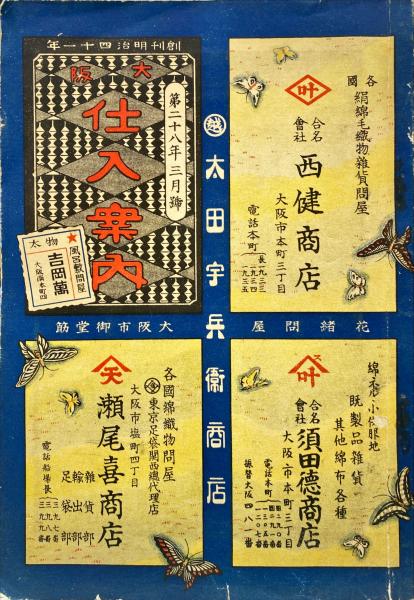 創刊明治四十一年
大阪
仕入案内
第二十八年 三月號
★風呂敷問屋
吉岡萬
大阪南本町四
太物
各國
絹綿毛織物雜貨問屋
叶
合名會社
西健商店
大阪市本町三丁目
電話本町
長九三三
九三四
九三五
越
太田宇兵衞商店
花緒問屋
大阪市御堂筋
叶
既製品雜貨
其他綿布各種
合名會社
須田德商店
大阪市本町三丁目
電話本町
振替大阪四八一番
天
各國綿織物問屋
東京足袋關西總代理店
大阪市塩町四丁目
瀬尾喜商店
雜貨部
輸出部
足袋部
電話船場長
三九七番
三九八番
三九九番